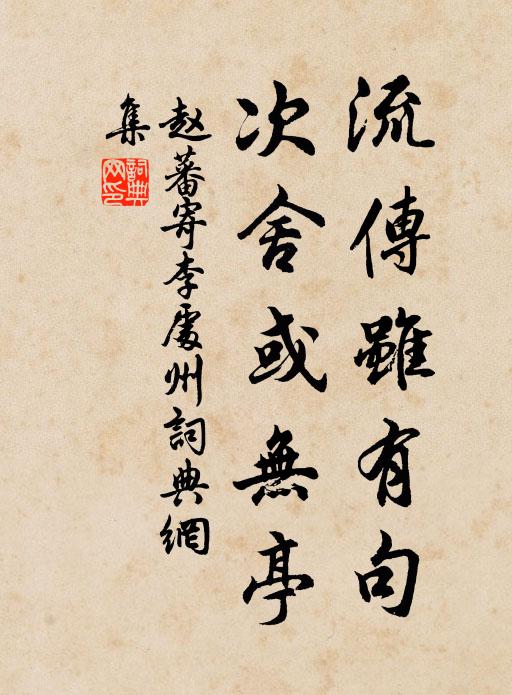 流傳雖有句
次舍或無亭
赵蕃寄李處州詞典網
集
詞典網印